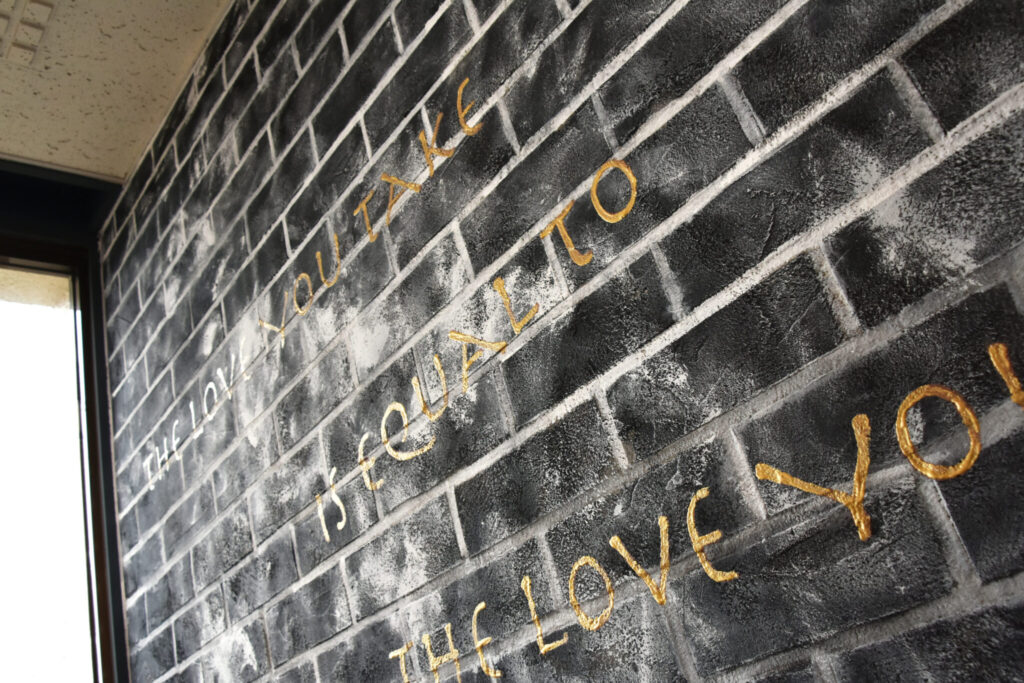 THE LOVE YOU TAKE
IS EQUAL TO
THE LOVE YOU